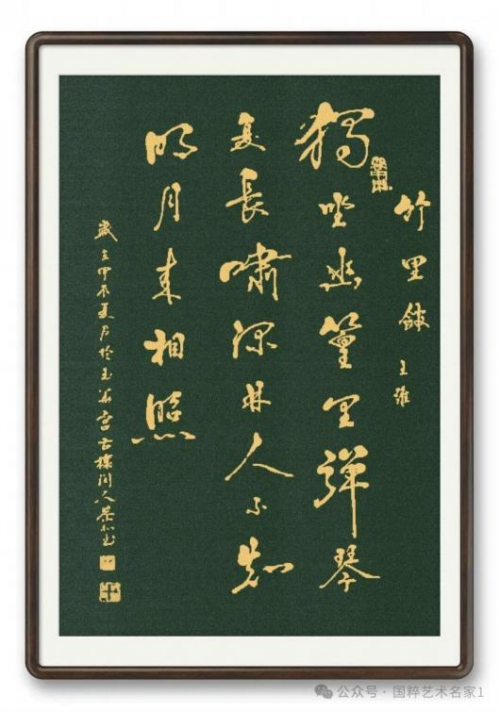 竹里館 王維
獨坐幽篁里彈琴
复長嘯深林人不知
明月来相照
歲在甲辰夏月於玉華宮古樸閒人
公众号·国粹艺术名家1